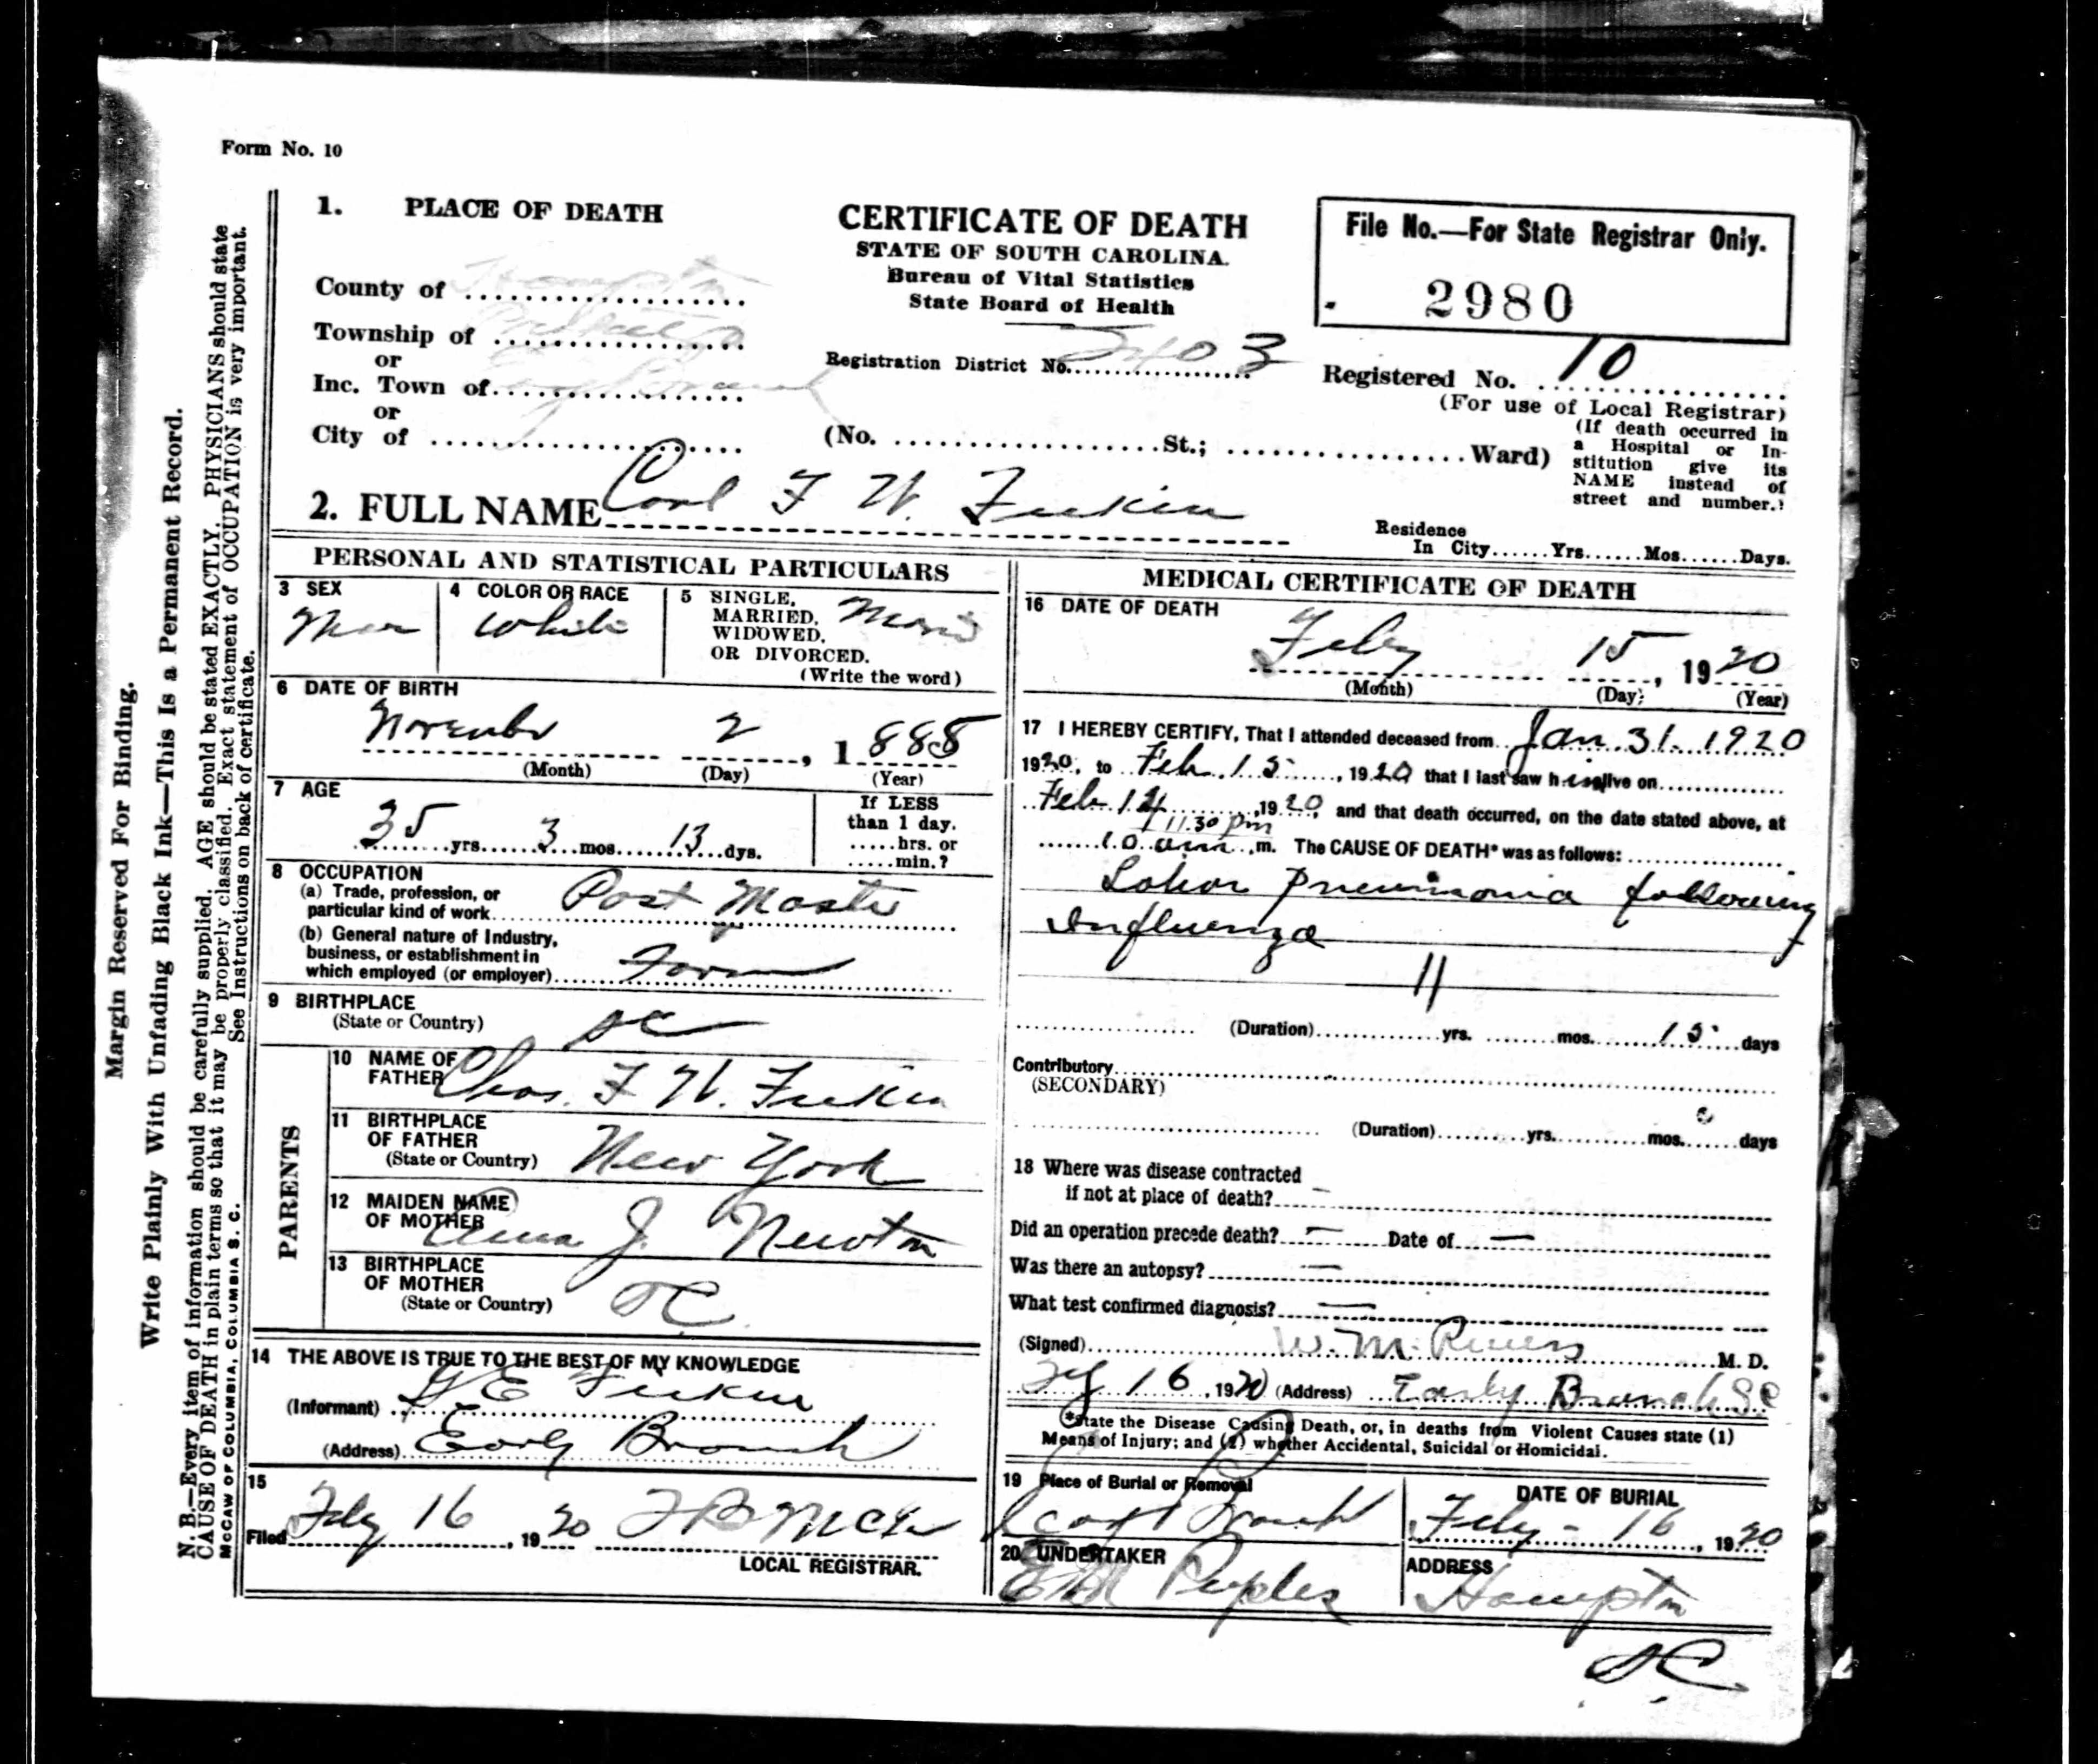 Form No. 10
1. PLACE OF DEATH
County of Hampton
Township of
or
Inc. Town of Early Branch
or
City of
CERTIFICATE OF DEATH
STATE OF SOUTH CAROLINA.
Bureau of Vital Statistics
State Board of Health
Registration District No. 2403
(No. St.; Ward)
File No.—For State Registrar Only.
2980
Registered No. 10
(For use of Local Registrar)
(If death occurred in
a Hospital or In-
stitution give its
NAME instead of
street and number.)
2. FULL NAME Carl F W.
Residence
In City Yrs. Mos. Days.
PERSONAL AND STATISTICAL PARTICULARS
3 SEX
4 COLOR OR RACE
White
5 SINGLE,
MARRIED,
WIDOWED,
OR DIVORCED.
(Write the word)
6 DATE OF BIRTH
November 2, 1
(Month) (Day) (Year)
7 AGE
35 yrs. 3 mos. 13 dys.
If LESS
than 1 day.
hrs. or
min.?
8 OCCUPATION
(a) Trade, profession, or
particular kind of work Post Master
(b) General nature of Industry,
business, or establishment in
which employed (or employer) Farm
9 BIRTHPLACE
(State or Country) SC
PARENTS
10 NAME OF
FATHER Chas. F W.
11 BIRTHPLACE
OF FATHER
(State or Country) New York
12 MAIDEN NAME
OF MOTHER J. Newton
13 BIRTHPLACE
OF MOTHER
(State or Country) SC
14 THE ABOVE IS TRUE TO THE BEST OF MY KNOWLEDGE
(Informant)
(Address) Early Branch
15
Filed Feby 16, 1920
LOCAL REGISTRAR.
MEDICAL CERTIFICATE OF DEATH
16 DATE OF DEATH
Feby 15, 1920
(Month) (Day) (Year)
17 I HEREBY CERTIFY, That I attended deceased from Jan. 31. 1920
1920, to Feb. 15, 1920 that I last saw him alive on
Feb 14, 1920, and that death occurred, on the date stated above, at
11.30 pm
m. The CAUSE OF DEATH* was as follows:
Lobar pneumonia following
Influenza
11
(Duration) yrs. mos. 15 days
Contributory
(SECONDARY)
(Duration) yrs. mos. days
18 Where was disease contracted
if not at place of death? —
Did an operation precede death? — Date of —
Was there an autopsy? —
What test confirmed diagnosis? —
(Signed) W. M. Rivers M. D.
16, 1920 (Address) Early Branch SC
*State the Disease Causing Death, or, in deaths from Violent Causes state (1)
Means of Injury; and (2) whether Accidental, Suicidal or Homicidal.
19 Place of Burial or Removal
DATE OF BURIAL
Feby - 16, 1920
20 UNDERTAKER
Peeples
ADDRESS
Hampton
SC
Margin Reserved For Binding.
Write Plainly With Unfading Black Ink—This Is a Permanent Record.
N. B.—Every item of information should be carefully supplied. AGE should be stated EXACTLY. PHYSICIANS should state
CAUSE OF DEATH in plain terms so that it may be properly classified. Exact statement of OCCUPATION is very important.
See Instructions on back of certificate.
McCAW OF COLUMBIA, COLUMBIA S. C.